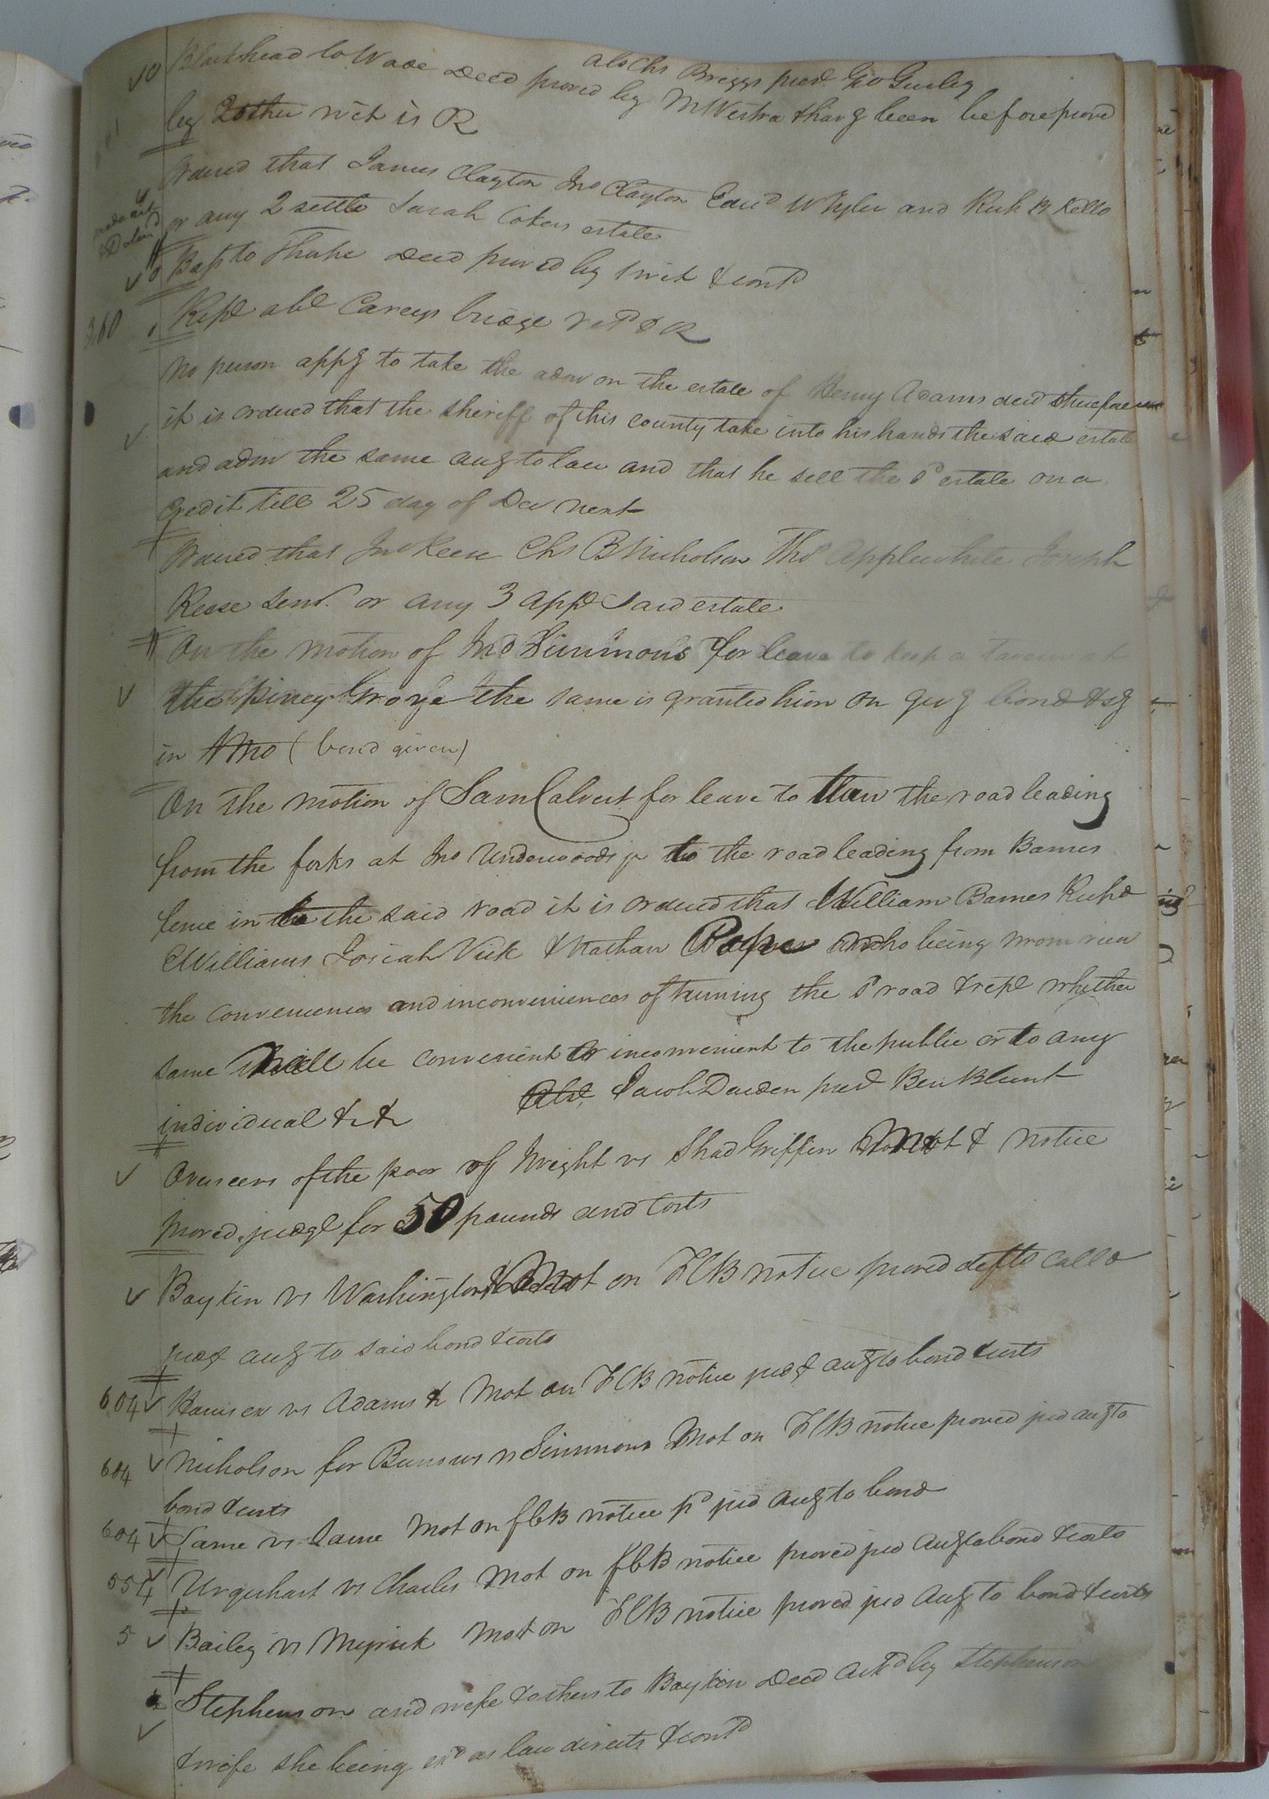 abs Chs Briggs pres.t Geo Gurley
Blackhead to Wade Deed proved by M Westra thavg been before proved
by 2 other wit is R
Ordered that James Clayton Jno Clayton Edwd W Tyler and Rich B Kello
or any 2 settle Sarah Cokers estate
Bass to Tharpe Deed proved by 1 wit & contd
360 Rept abt Careys bridge retd & R
No person appg to take the admr on the estate of Henry Adams decd therefore
it is ordered that the sheriff of this county take into his hands the said estate
and admr the same accg to law and that he sell the sd estate on a
Credit till 25 day of Dec next
Ordered that Jno Reese Chs B Nicholson Thos Applewhite Joseph
Reese Senr. or any 3 appe said estate
On the motion of Jno Simmons for leave to keep a tavern at
the Piney Grove the same is granted him on givg bond & sy
in (bond given)
On the motion of Sam Calvert for leave to turn the road leading
from the forks at Jno Underwoods jr to the road leading from Barnes
fence in to the said road it is ordered that William Barnes
Williams Josiah Vick & Nathan Pope who being sworn view
the conveniences and inconveniences of turning the sd road & rept whether
same will be convenient or inconvenient to the public or to any
individual &c &c abs. Jacob Darden prest Ben Blunt
Overseers of the poor of Wright vs Shad Griffin Mot & notice
proved, judgt for 50 pounds and Costs
Boykin vs Washington & Mot on FCB notice proved defts calld
judgt accg to said bond & costs
604 vs Adams & Mot on FCB notice judgt accg to bond & costs
604 Nicholson for vs Simmons Mot on FCB notice proved jud accg to
bond & costs
604 Same vs Same Mot on fCB notice pd jud accg to bond
554 Urquhart vs Charles Mot on fCB notice proved jud accg to bond & costs
5 Bailey vs Myrick Mot on FCB notice proved jud accg to bond & costs
Stephenson and wife & others to Boykin Deed Ackd by Stephenson
& wife she being exd as law directs & contd